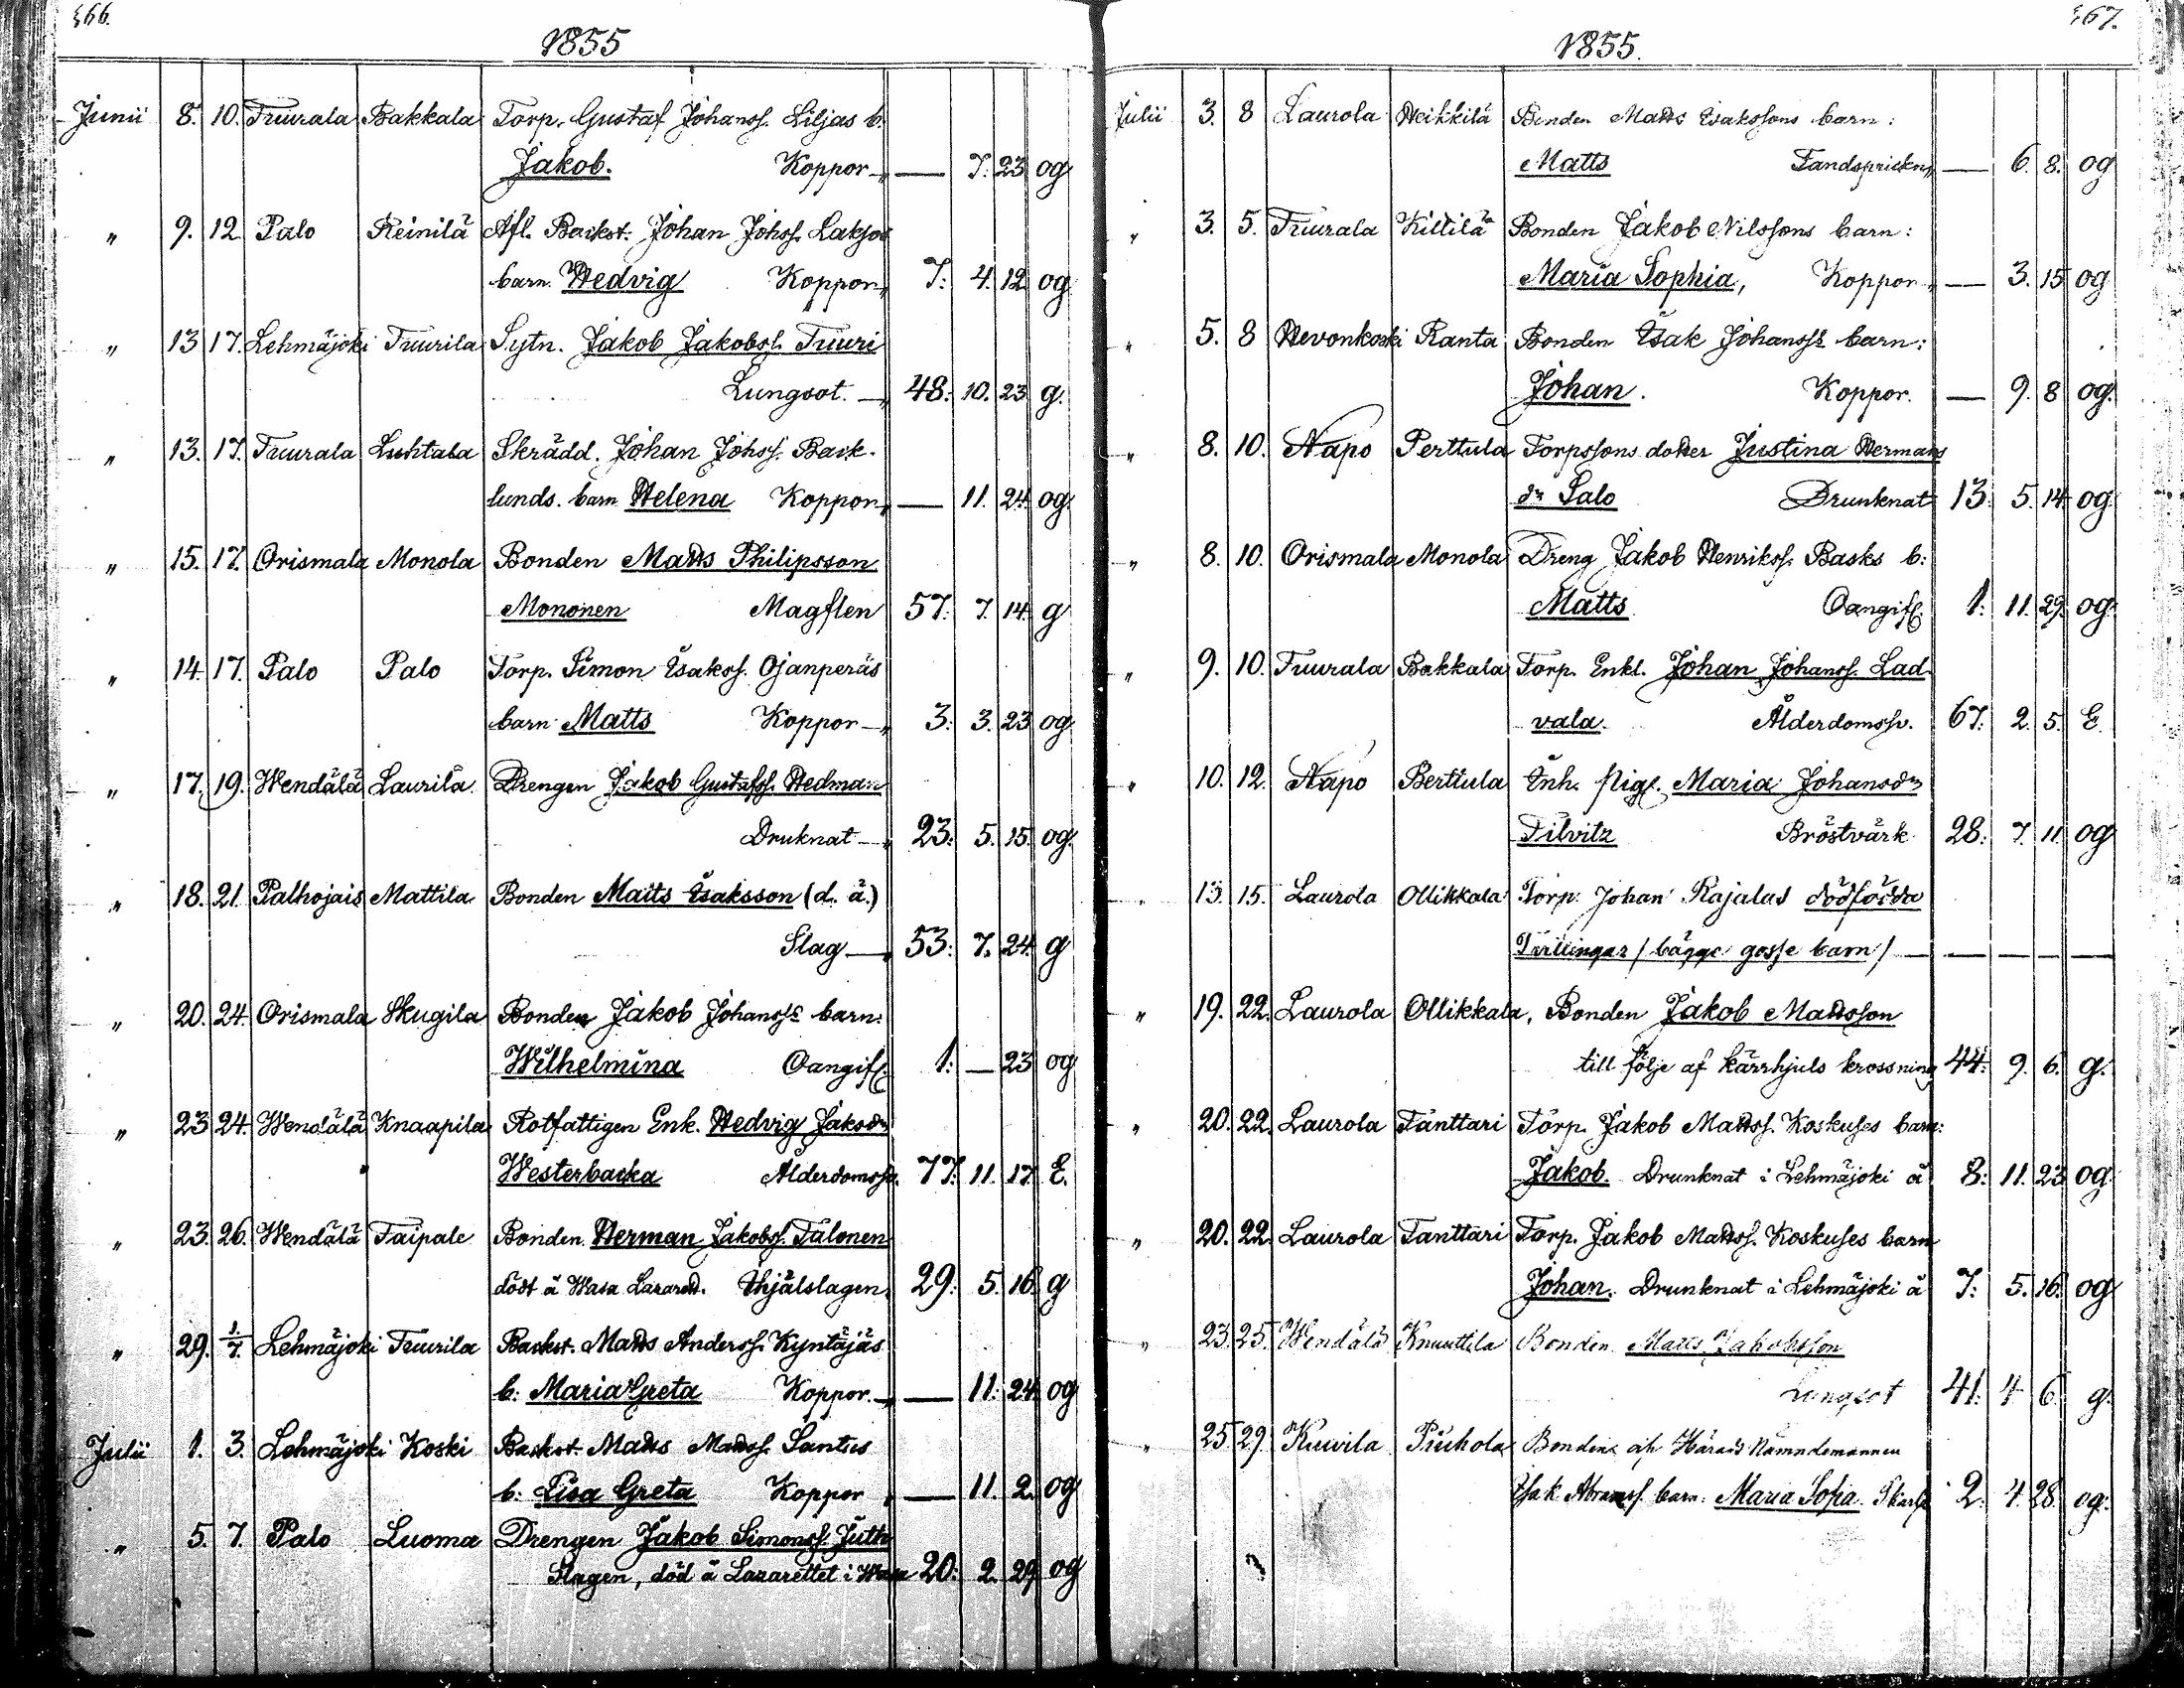 466.
1855
Junii 8. 10. Tuurala Bakkala Torp. Gustaf Johanss. Liljas b.
Jakob. Koppor — 7. 23 og
" 9. 12 Palo Reinilä Afl. Backst. Johan Johss. Laksos
barn. Hedvig Koppor 7: 4. 12 og
" 13 17. Lehmäjoki Tuurila Sytn. Jakob Jakobss. Tuuri
Lungsot. 48: 10. 23 g.
" 13. 17. Tuurala Luhtala Skrädd. Johan Johss. Back-
lunds. barn Helena Koppor — 11. 24. og.
" 15. 17. Orismala Monola Bonden Matts Philipsson
Mononen Magflen 57: 7. 14. g
" 14. 17. Palo Palo Torp. Simon Isakss. Ojanperäs
barn Matts Koppor 3: 3. 23 og
" 17. 19. Wendälä Laurila Drengen Jakob Gustafss. Hedman
Druknat 23: 5. 15. og.
" 18. 21. Palhojais Mattila Bonden Matts Isaksson (d. ä.)
Slag 53: 7. 24. g
" 20. 24. Orismala Skugila Bonden Jakob Johanss barn:
Wilhelmina Oangif. 1: — 23 og
" 23 24. Wendälä Knaapila Rotfattigen Enk. Hedvig Jaksdr
Westerbacka Ålderdomssv. 77: 11. 17. E.
" 23. 26. Wendälä Taipale Bonden Herman Jakobss. Talonen
dödt å Wasa Lazarett. Ihjälslagen 29: 5. 16. g
" 29. 1/7. Lehmäjoki Tuurila Backst. Matts Anderss. Kyntäjäs
b: Maria Greta Koppor. — 11. 24. og
Julii 1. 3. Lehmäjoki Koski Backst. Matts Mattss. Santus
b: Lisa Greta Koppor — 11. 2. og
" 5. 7. Palo Luoma Drengen Jakob Simonss.
Slagen, död å Lazarettet i Wasa 20: 2. 29 og
467.
1855.
Julii 3. 8 Laurola Heikkilä Bonden Matts Isakssons barn:
Matts Tandsprickn — 6. 8. og
" 3. 5. Tuurala Kittilä Bonden Jakob Nilssons barn:
Maria Sophia, Koppor — 3. 15 og
" 5. 8 Hevonkoski Ranta Bonden Isak Johanss barn:
Johan. Koppor. — 9. 8 og.
" 8. 10. Napo Perttula Torpssons dotter Justina Hermans
dr Salo Drunknat 13: 5. 14. og
" 8. 10. Orismala Monola Dreng Jakob Henrikss. Basks b:
Matts Oangif. 1: 11. 29. og.
" 9. 10. Tuurala Bakkala Torp. Enkl. Johan Johanss. Lad-
vala. Ålderdomssv. 67: 2. 5. E.
" 10. 12. Napo Berttula Inh. Pig. Maria Johansdr
Filvitz Bröstvärk 28: 7. 11 og
" 13. 15. Laurola Ollikkala Torp. Johan Rajalas dödfödda
Tvillingar / bägge gosse barn / — — — —
" 19. 22. Laurola Ollikkala, Bonden Jakob Mattsson
till följe af kärrhjuls krossning 44: 9. 6. g.
" 20. 22. Laurola Tanttari Torp. Jakob Mattss. Koskuses barn:
Jakob. Drunknat i Lehmäjoki å 8: 11. 23 og
" 20. 22. Laurola Tanttari Torp. Jakob Mattss. Koskuses barn
Johan. Drunknat i Lehmäjoki å 7: 5. 16. og
" 23. 25. Wendälä Knuuttila Bonden Matts Jakobsson
Lungsot 41. 4 6 g.
" 25 29. Kuivila Piuhola Bondens och Härads Nämndemannen
Isak Abramss. barn: Maria Sofia. 2. 4. 28. og.